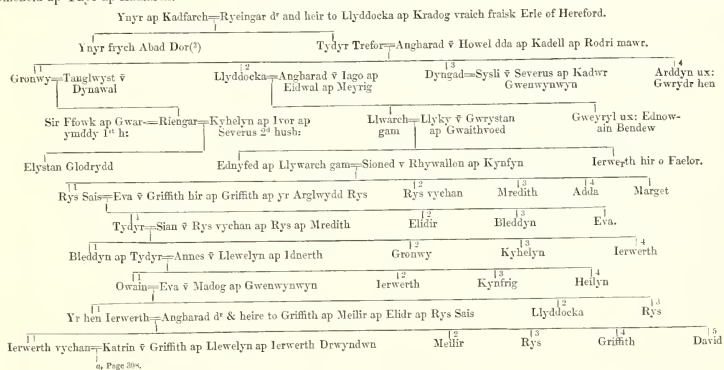 Ynyr ap Kadfarch=Ryeingar dr and heir to Llyddocka ap Kradog vraich fraisk Erle of Hereford.
Ynyr frych Abad Dor(2) Tydyr Trefor=Angharad ṽ Howel dda ap Kadell ap Rodri mawr.
|1 |2 |3 |4
Gronwy=Tanglwyst ṽ Dynawal Llyddocka=Angharad ṽ Iago ap Eidwal ap Meyrig Dyngad=Sysli ṽ Severus ap Kadwr Gwenwynwyn Arddyn ux: Gwrydr hen
Sir Ffowk ap Gwarymddy 1st h:=Riengar=Kyhelyn ap Ivor ap Severus 2d husb: Llwarch gam=Llyky ṽ Gwrystan ap Gwaithvoed Gweyryl ux: Ednowain Bendew
Elystan Glodrydd Ednyfed ap Llywarch gam=Sioned v Rhywallon ap Kynfyn Ierwerth hir o Faelor.
|1 |2 |3 |4
Rys Sais=Eva ṽ Griffith hir ap Griffith ap yr Arglwydd Rys Rys vychan Mredith Adda Marget
|1 |2 |3
Tydyr=Sian ṽ Rys vychan ap Rys ap Mredith Elidir Bleddyn Eva.
|1 |2 |3 |4
Bleddyn ap Tydyr=Annes ṽ Llewelyn ap Idnerth Gronwy Kyhelyn Ierwerth
|1 |2 |3 |4
Owain=Eva ṽ Madog ap Gwenwynwyn Ierwerth Kynfrig Heilyn
|1 |2 |3
Yr hen Ierwerth=Angharad dr & heire to Griffith ap Meilir ap Elidr ap Rys Sais Llyddocka Rys
|1 |2 |3 |4 |5
Ierwerth vychan=Katrin ṽ Griffith ap Llewelyn ap Ierwerth Drwyndwn Meilir Rys Griffith David
a, Page 308.